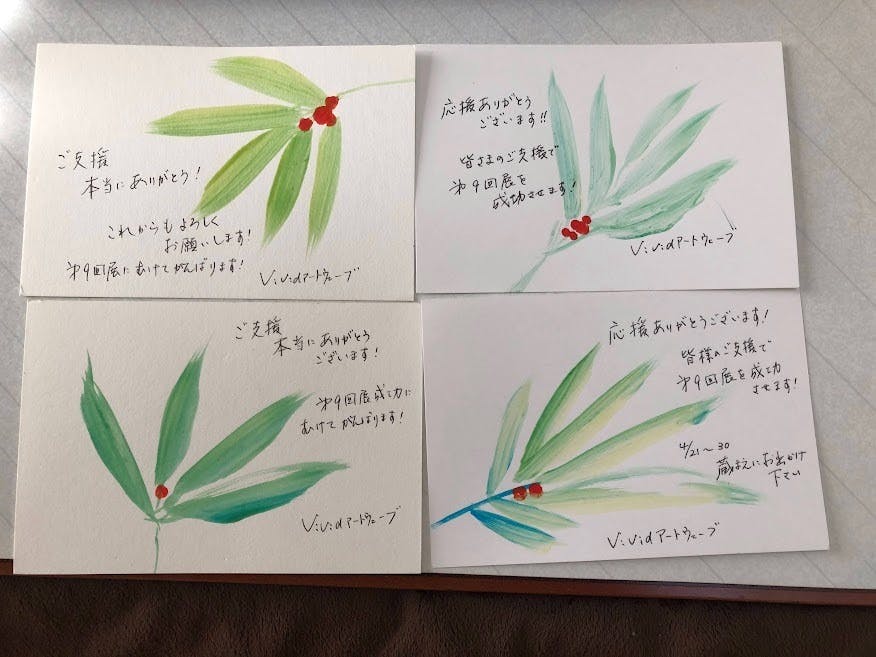 ご支援
本当にありがとう!
これからもよろしく
お願いします!
第9回展にむけてがんばります!
ViVidアートウェーブ
応援ありがとう
ございます!!
皆さまのご支援で
第9回展を
成功させます!
ViVidアートウェーブ
ご支援
本当にありがとう
ございます!
第9回展成功に
むけてがんばります!
ViVidアートウェーブ
応援ありがとうございます!
皆様のご支援で
第9回展を成功
させます!
4/21〜30
にお出かけ
下さい
ViVidアートウェーブ